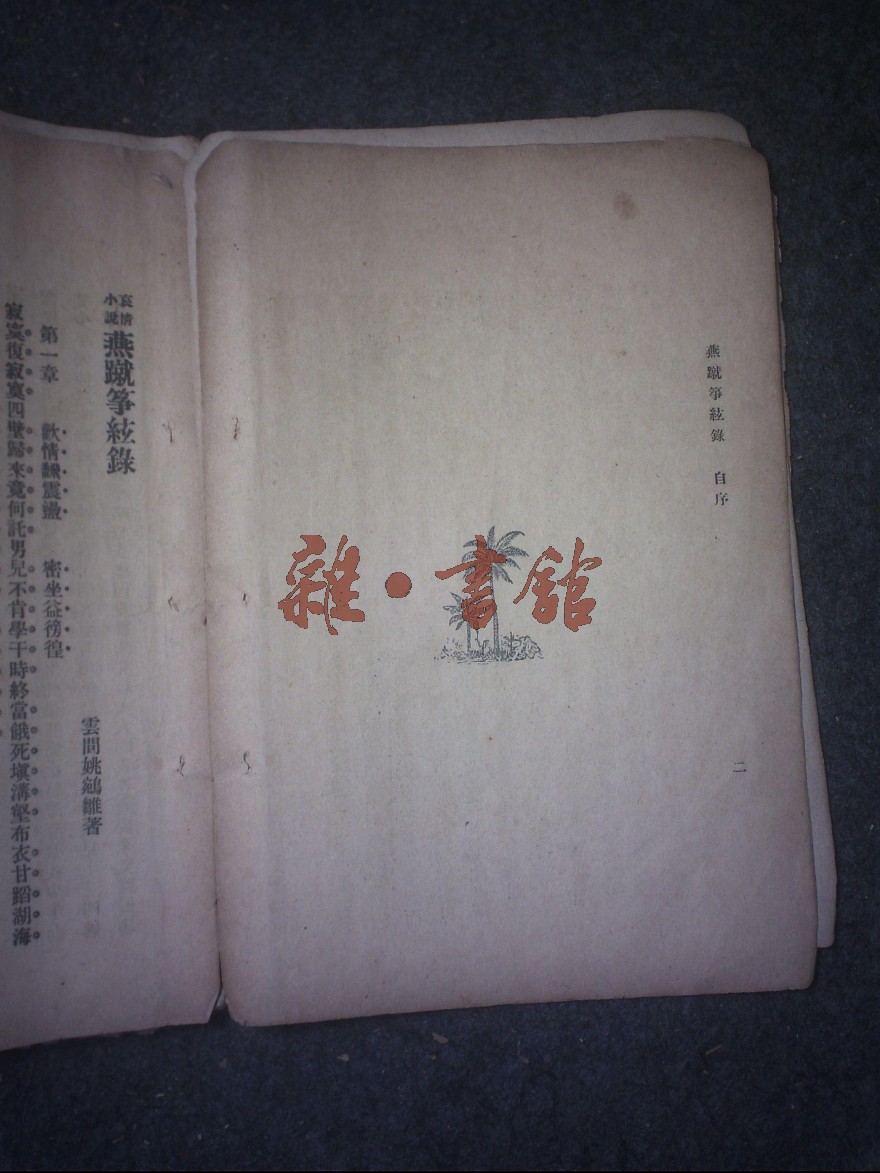 燕蹴箏絃錄　自序
二
雜·書館
哀情小說　燕蹴箏絃錄
雲間姚鵷雛著
第一章　歡情翻震盪　密坐益徬徨
寂寞復寂寞四壁歸來竟何託男兒不肯學干時終當餓死塡溝壑布衣甘蹈湖海